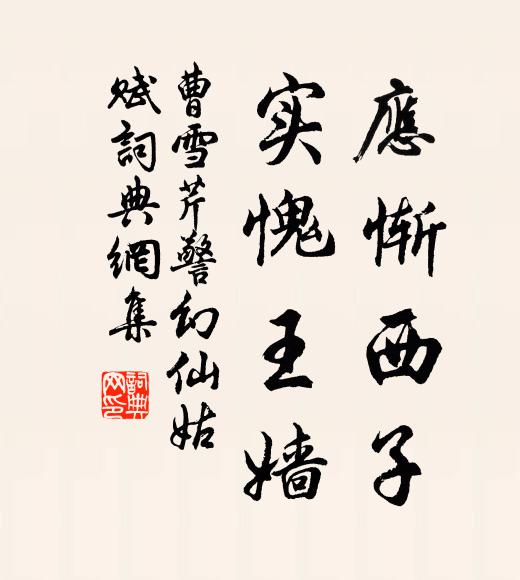 應慚西子
实愧王嫱
曹雪芹警幻仙姑
赋詞典網集
詞典网印